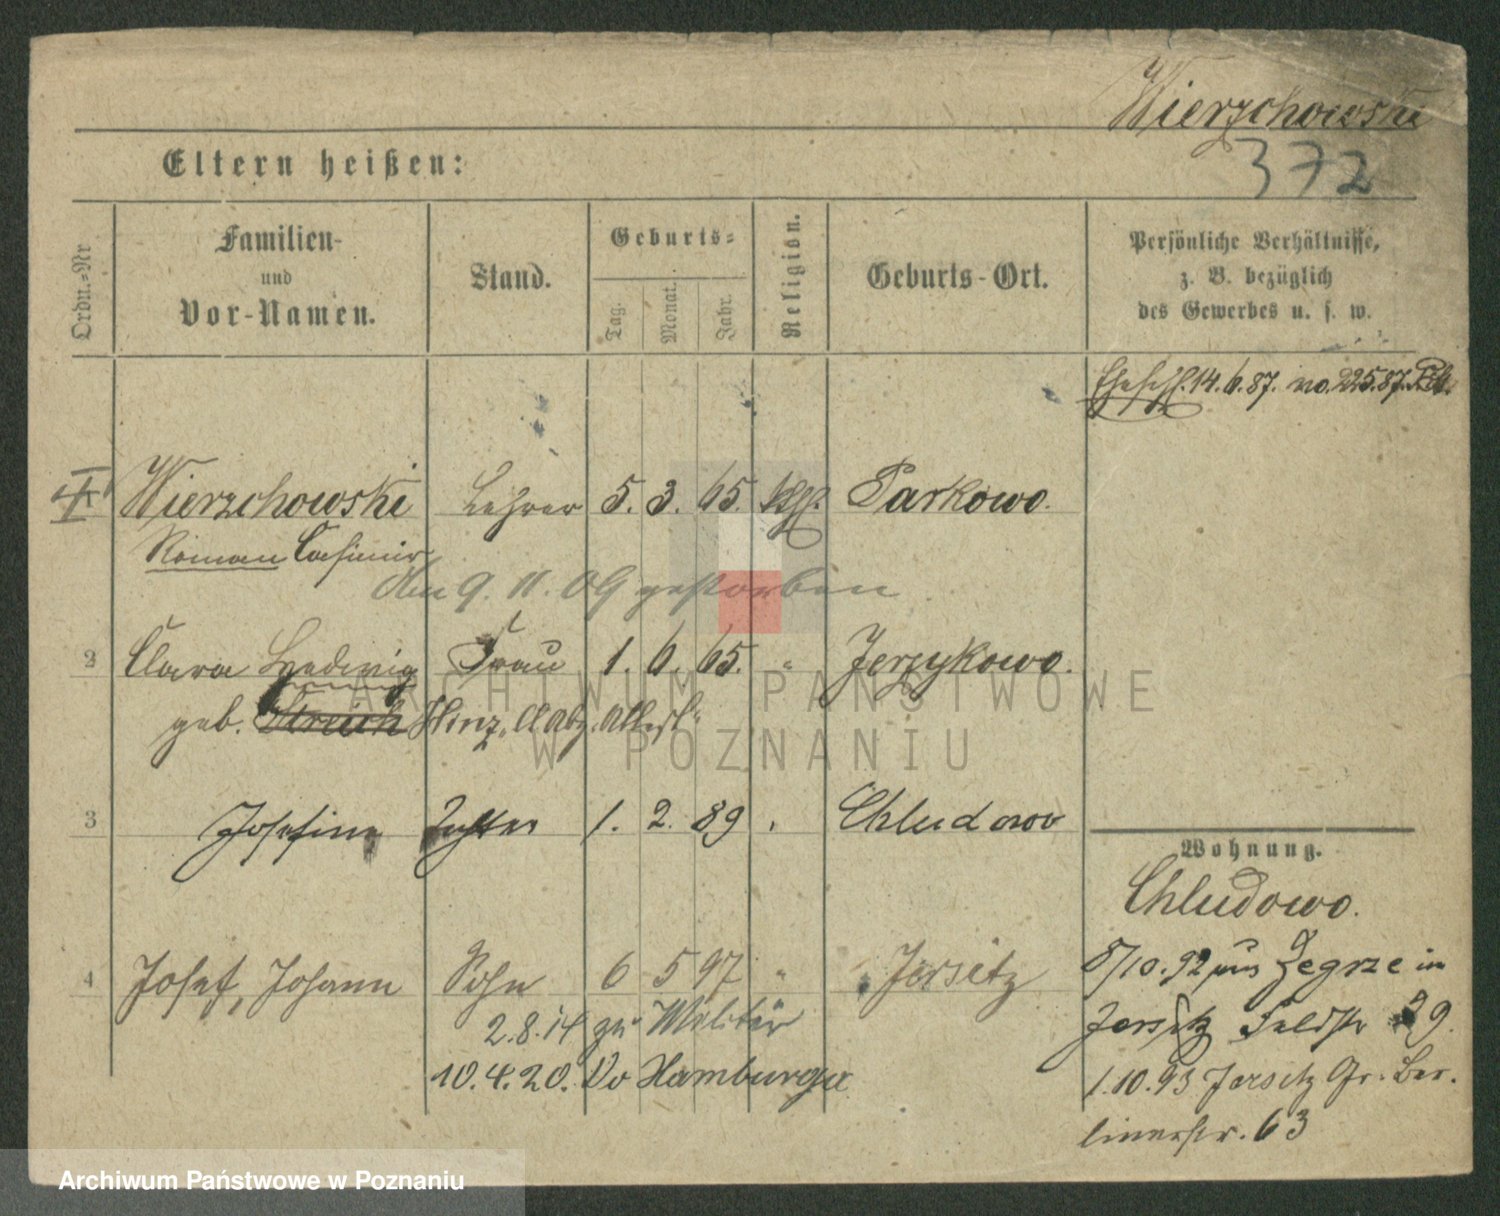 Wierzchowski
372
Eltern heißen:
Ordn.-Nr
Familien- und Vor-Namen.
Stand.
Geburts-
Tag.
Monat.
Jahr.
Religion.
Geburts-Ort.
Persönliche Verhältnisse,
z. B. bezüglich
des Gewerbes u. s. w.
Eheschl. 14.6.87. no. 225.87.
Wierzchowski Lehrer 5. 3. 65. kath. Parkowo.
Roman Casimir
Am 9.11.09 gestorben
2 Clara Hedwig Frau 1. 6. 65. " Jerzykowo.
geb. Streich Hinz
3 Josefine Tochter 1. 2. 89 Chludowo
Wohnung.
Chludowo.
4 Josef, Johann Sohn 6 5 97 " Jersitz
8/10.92 aus Zegrze in
2.8.14 zu Militär
Jersitz Feldstr 29.
10.4.20. Vo Hamburger
1.10.93 Jersitz Gr. Ber-
linerstr. 63
ARCHIWUM PAŃSTWOWE
W POZNANIU
Archiwum Państwowe w Poznaniu